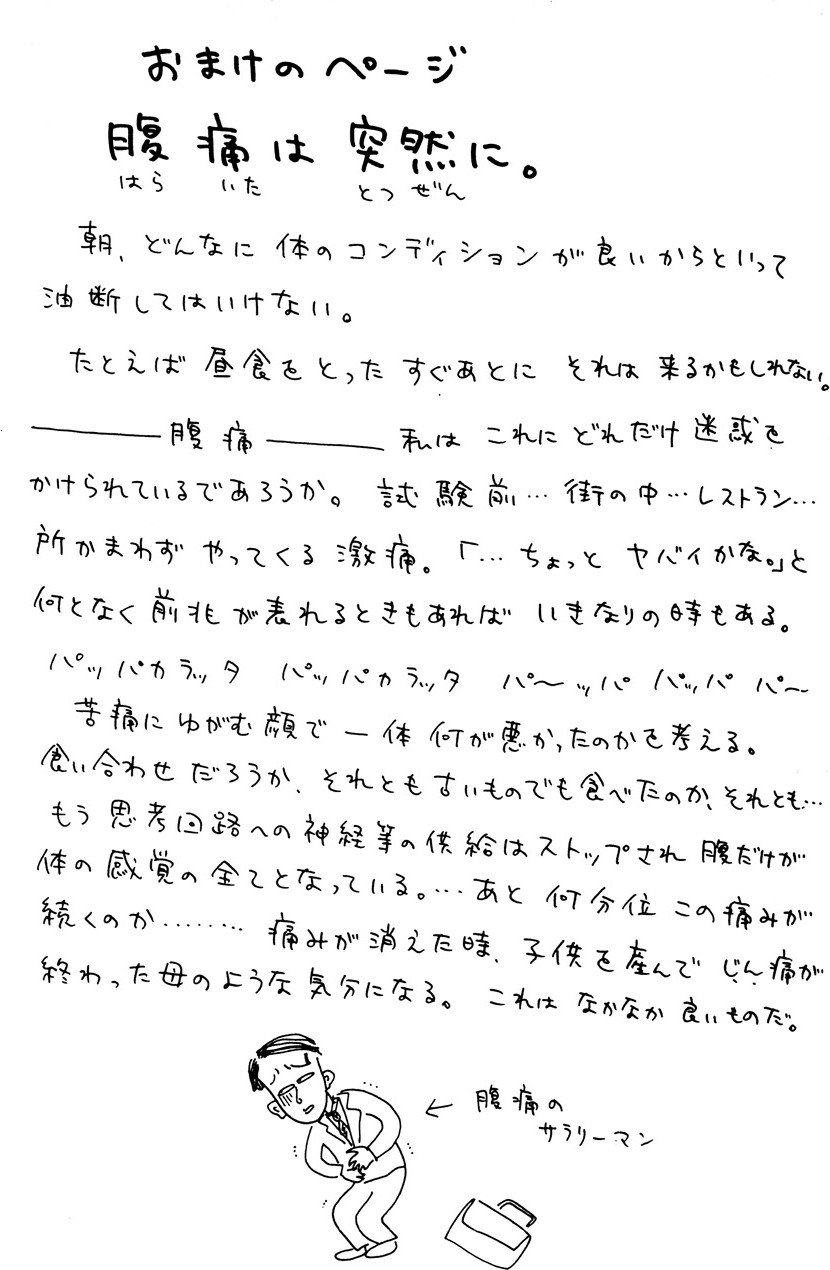 おまけのページ
腹痛は突然に。
はら いた とつ ぜん
朝、どんなに体のコンディションが良いからといって
油断してはいけない。
たとえば昼食をとったすぐあとに それは来るかもしれない。
――――腹痛―――― 私は これに どれだけ迷惑を
かけられているであろうか。試験前…街の中…レストラン…
所かまわず やってくる激痛。「…ちょっと ヤバイかな。」と
何となく前兆が表れるときもあれば いきなりの時もある。
パッパカラッタ パッパカラッタ パ〜ッパ パッパ パ〜
苦痛にゆがむ顔で一体何が悪かったのかを考える。
食い合わせだろうか、それとも古いものでも食べたのか、それとも…
もう思考回路への神経等の供給はストップされ腹だけが
体の感覚の全てとなっている。…あと 何分位この痛みが
続くのか……… 痛みが消えた時、子供を産んで じん痛が
終わった母のような気分になる。これは なかなか良いものだ。
← 腹痛の
サラリーマン